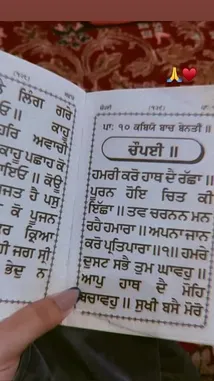 ਲਿੰਗ ਗਰੇ
ਕਾਹੂ
ਹਰਿ ਅਵਾਚੀ
ਕਾਹੂ ਪਛਾਹ ਕੋ
ਕੋਊ
ਹੈ ਪਸੁ
ਕੋ ਪੂਜਨ
ਕ੍ਰਿਆ
ਜਗ ਸ੍ਰੀ
ਭੇਦੁ ਨ
ਪਾ: ੧੦ ਕਬਿਯੋ ਬਾਚ ਬੇਨਤੀ ॥
ਚੌਪਈ ॥
ਹਮਰੀ ਕਰੋ ਹਾਥ ਦੈ ਰੱਛਾ ॥
ਪੂਰਨ ਹੋਇ ਚਿਤ ਕੀ
ਇੱਛਾ ॥ ਤਵ ਚਰਨਨ ਮਨ
ਰਹੇ ਹਮਾਰਾ ॥ ਅਪਨਾ ਜਾਨ
ਕਰੋ ਪ੍ਰਤਿਪਾਰਾ ॥੧॥ ਹਮਰੇ
ਦੁਸਟ ਸਭੈ ਤੁਮ ਘਾਵਹੁ ॥
ਆਪੁ ਹਾਥ ਦੈ ਮੋਹਿ
ਬਚਾਵਹੁ ॥ ਸੁਖੀ ਬਸੈ ਮੋਰੋ